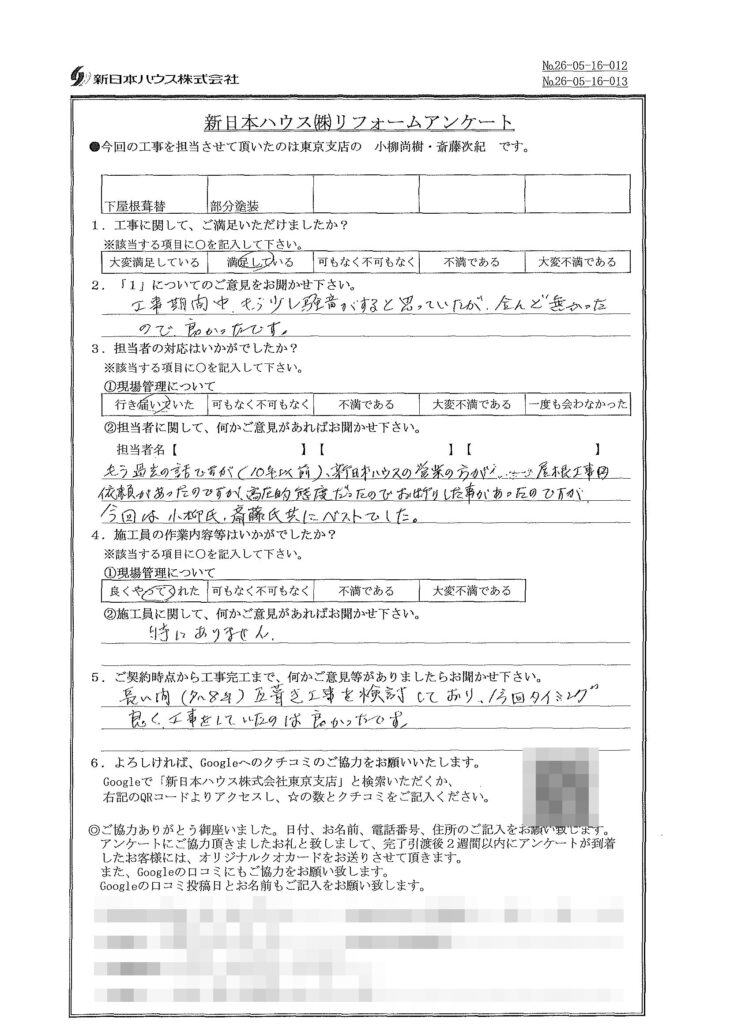 新日本ハウス株式会社
No.26-05-16-012
No.26-05-16-013
新日本ハウス㈱リフォームアンケート
●今回の工事を担当させて頂いたのは東京支店の 小柳尚樹・斎藤次紀 です。
下屋根葺替 部分塗装
1．工事に関して、ご満足いただけましたか？
※該当する項目に○を記入して下さい。
大変満足している 満足している 可もなく不可もなく 不満である 大変不満である
2．「1」についてのご意見をお聞かせ下さい。
工事期間中、もう少し騒音がすると思っていたが、殆んど無かった
ので、良かったです。
3．担当者の対応はいかがでしたか？
※該当する項目に○を記入して下さい。
①現場管理について
行き届いていた 可もなく不可もなく 不満である 大変不満である 一度も会わなかった
②担当者に関して、何かご意見があればお聞かせ下さい。
担当者名【 】【 】【 】
もう過去の話ですが(10年以前)、新日本ハウスの営業の方が 屋根工事の
依頼があったのですが、高圧的態度だったのでお断りした事があったのですが
今回は小柳氏、斎藤氏共にベストでした。
4．施工員の作業内容等はいかがでしたか？
※該当する項目に○を記入して下さい。
①現場管理について
良くやってくれた 可もなく不可もなく 不満である 大変不満である
②施工員に関して、何かご意見があればお聞かせ下さい。
特にありません。
5．ご契約時点から工事完工まで、何かご意見等がありましたらお聞かせ下さい。
長い間(7〜8年)瓦葺き工事を検討しており、今回タイミング
良く、工事をしていたのは良かったです。
6．よろしければ、Googleへのクチコミのご協力をお願いいたします。
Googleで「新日本ハウス株式会社東京支店」と検索いただくか、
右記のQRコードよりアクセスし、☆の数とクチコミをご記入ください。
◎ご協力ありがとう御座いました。日付、お名前、電話番号、住所のご記入をお願い致します。
アンケートにご協力頂きましたお礼と致しまして、完了引渡後２週間以内にアンケートが到着
したお客様には、オリジナルクオカードをお送りさせて頂きます。
また、Googleの口コミにもご協力をお願い致します。
Googleの口コミ投稿日とお名前もご記入をお願い致します。